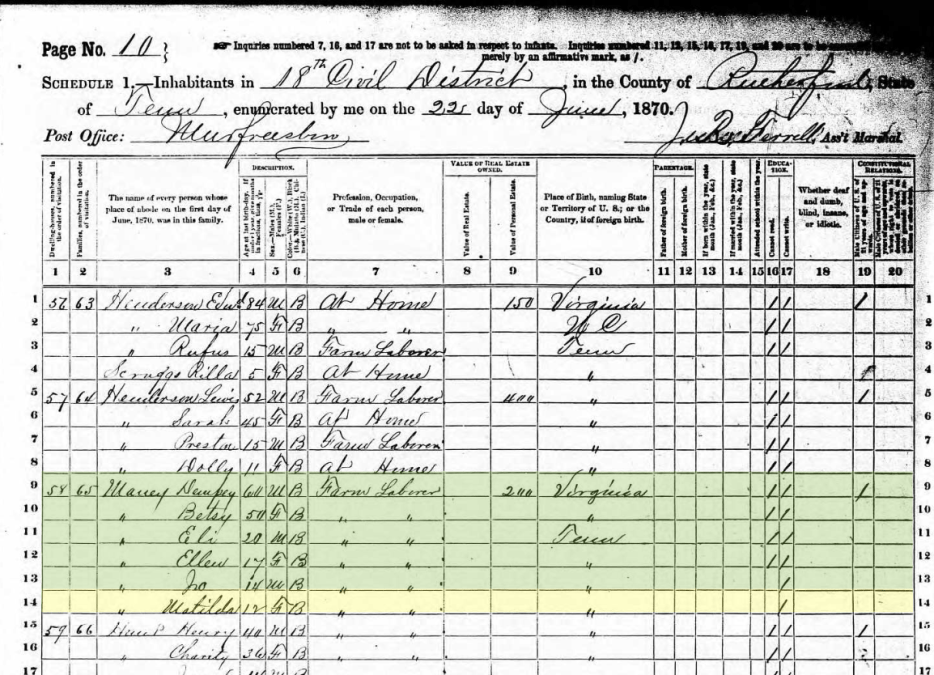 Page No. 10
Inquiries numbered 7, 16, and 17 are not to be asked in respect to infants. Inquiries numbered 11, 12, 15, 16, 17, 19, and 20 are to be answered
merely by an affirmative mark, as /.
SCHEDULE 1.—Inhabitants in 18th Civil District, in the County of Rutherford, State
of Tenn, enumerated by me on the 22 day of June, 1870.
Post Office: Murfreesboro Ferrell, Ass't Marshal.
DESCRIPTION. VALUE OF REAL ESTATE OWNED. PARENTAGE. EDUCATION. CONSTITUTIONAL RELATIONS.
Dwelling-houses, numbered in the order of visitation.
Families, numbered in the order of visitation.
The name of every person whose place of abode on the first day of June, 1870, was in this family.
Profession, Occupation, or Trade of each person, male or female.
Value of Real Estate.
Value of Personal Estate.
Place of Birth, naming State or Territory of U. S.; or the Country, if of foreign birth.
Father of foreign birth.
Mother of foreign birth.
Attended school within the year.
Cannot read.
Cannot write.
Whether deaf and dumb, blind, insane, or idiotic.
1 2 3 4 5 6 7 8 9 10 11 12 13 14 15 16 17 18 19 20
1 56 63 Henderson Edwd 84 M B At Home 150 Virginia / / / 1
2 " Maria 75 F B " " N C / / 2
3 " Rufus 15 M B Farm Laborer Tenn / / 3
4 Scruggs Rilla 5 F B At Home " 4
5 57 64 Henderson Lewis 52 M B Farm Laborer 400 " / / / 5
6 " Sarah 45 F B At Home " / / 6
7 " Preston 15 M B Farm Laborer " / / 7
8 " Dolly 11 F B At Home " / / 8
9 58 65 Maney Dempsey 60 M B Farm Laborer 200 Virginia / / / 9
10 " Betsy 50 F B " " " / / 10
11 " Eli 20 M B " " Tenn / / 11
12 " Ellen 17 F B " " " / / 12
13 " Jo 14 M B " " " / 13
14 " Matilda 12 F B " " " / 14
15 59 66 Henry 40 M B " " " / / / 15
16 " Charity 36 F B " " " / / 16
17 17